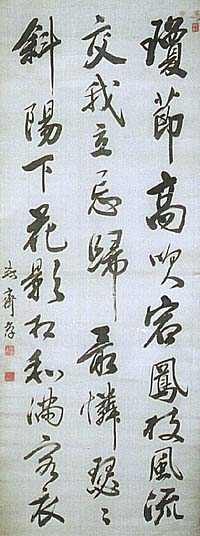 瓊節高吹宿鳳枝風流
交我立忘歸最憐瑟〻
斜陽下花影相和滿客衣